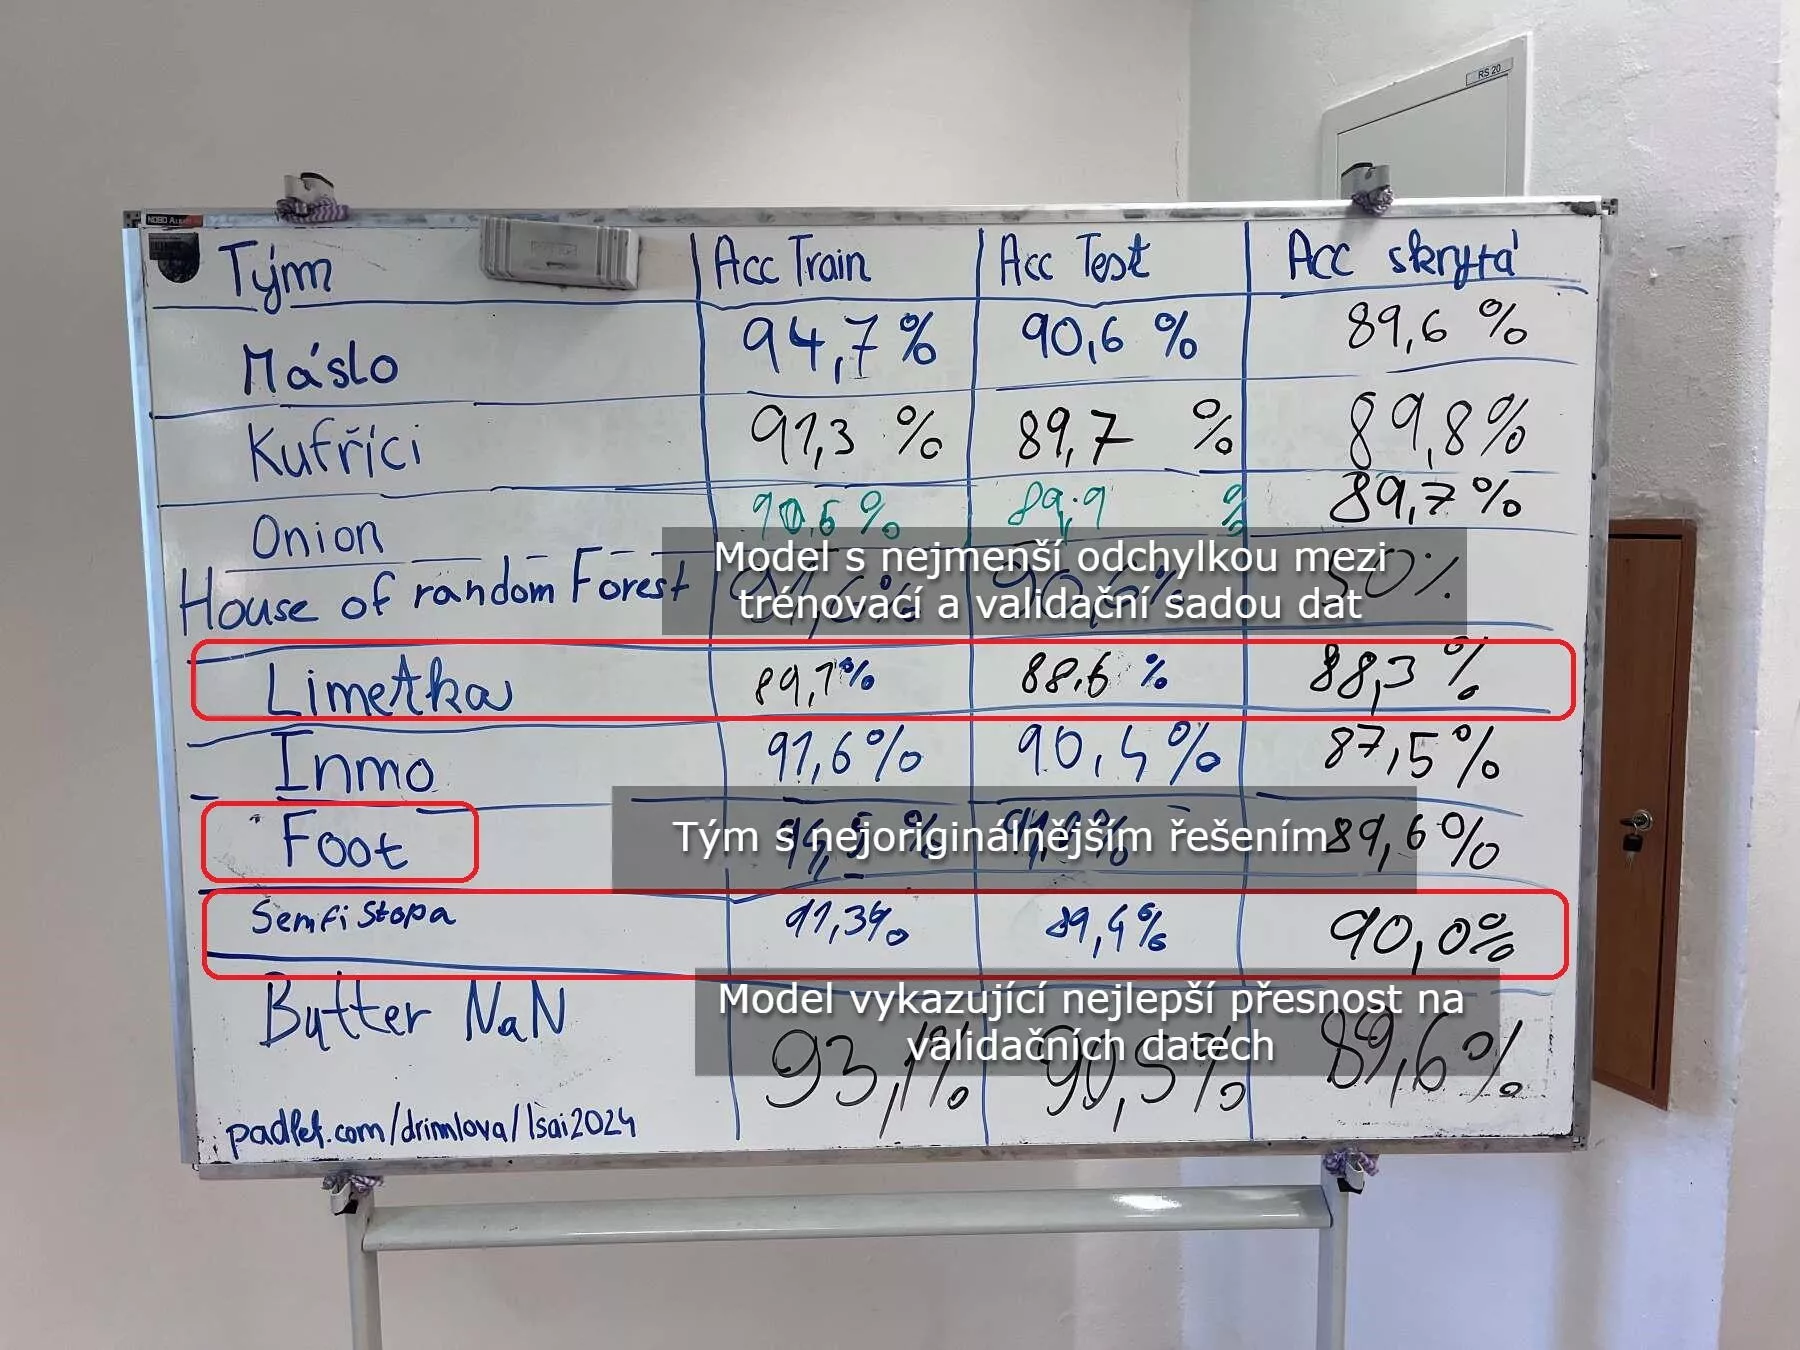 RS 20
NOBO
Tým Acc Train Acc Test Acc skrytá
Máslo 94,7% 90,6 % 89,6 %
Kufříci 91,3 % 89,7 % 89,8%
Onion 90,6% 89,9 % 89,7%
Model s nejmenší odchylkou mezi
trénovací a validační sadou dat
House of random Forest
Limetka 89,7% 88,6 % 88,3 %
Inmo 91,6% 90,4% 87,5%
Foot 89,6%
Tým s nejoriginálnějším řešením
Semfistopa 91,3% 89,4% 90,0%
Model vykazující nejlepší přesnost na
validačních datech
Butter NaN 93,1% 90,5% 89,6%
padlet.com/drimlova/lsai2024